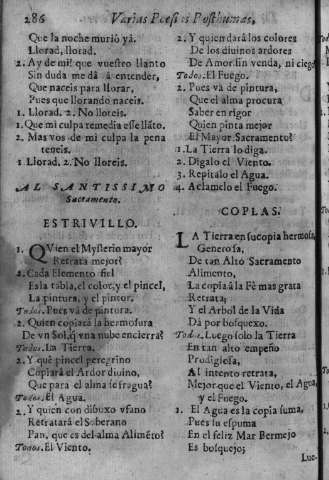 286 Varias Poesias Posthumas,
Que la noche murió yá.
Llorad, llorad.
2. Ay de mi! que vuestro llanto
Sin duda me dá à entender,
Que naceis para llorar,
Pues que llorando naceis.
1. Llorad. 2. No lloreis.
1. Que mi culpa remedia esse llãto.
2. Mas vos de mi culpa la pena
teneis.
1 Llorad. 2. No lloreis.
AL SANTISSIMO
Sacramento.
ESTRIVILLO.
1. QUien el Mysterio mayor
Retrata mejor?
2. Cada Elemento fiel
Es la tabla, el color, y el pincel,
La pintura, y el pintor.
Todos. Pues vá de pintura.
2. Quien copiará la hermosura
De vn Sol, q̃ vna nube encierra?
Todos. La Tierra.
2. Y què pincel peregrino
Copiará el Ardor divino,
Que para el alma se fragua?
Todos. El Agua.
2. Y quien con dibuxo vfano
Retratará el Soberano
Pan, que es del alma Alimẽto?
Todos. El Viento.
2. Y quien dará los colores
De los divinos ardores
De Amor sin venda, ni ciego
Todos. El Fuego.
2. Pues vá de pintura,
Que el alma procura
Saber en rigor
Quien pinta mejor
El Mayor Sacramento?
1. La Tierra lo diga.
2. Digalo el Viento.
3. Repitalo el Agua.
4. Aclamelo el Fuego.
COPLAS.
1. LA Tierra en su copia hermosa,
Generosa,
De tan Alto Sacramento
Alimento,
La copia à la Fè mas grata
Retrata;
Y el Arbol de la Vida
Dá por bosquexo.
Todos. Luego solo la Tierra
En tan alto empeño
Prodigiosa,
Al intento retrata,
Mejor que el Viento, el Agua,
y el Fuego.
2. El Agua es la copia suma,
Pues su espuma
En el feliz Mar Bermejo
Es bosquejo;
Lue-